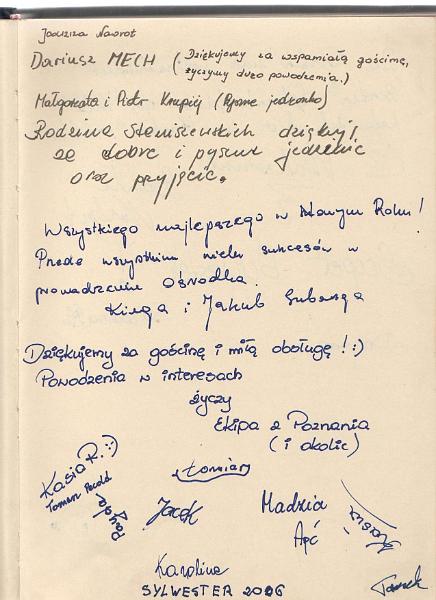 Nawrot
Dariusz MECH (Dziękujemy za wspaniałą gościnę,
życzymy dużo powodzenia.)
Małgorzata i Piotr (Pyszne jedzonko)
Rodzina Staniszewskich dziękuję
za dobre i pyszne jedzenie
oraz przyjęcie.
Wszystkiego najlepszego w Nowym Roku!
Przede wszystkim wielu sukcesów w
prowadzeniu Ośrodka.
Kinga i Jakub
Dziękujemy za gościnę i miłą obsługę!:)
Powodzenia w interesach
życzy
Ekipa z Poznania
(i okolic)
Kasia R. :)
Tomek
Jacek
Madzia
Karolina
SYLWESTER 2006